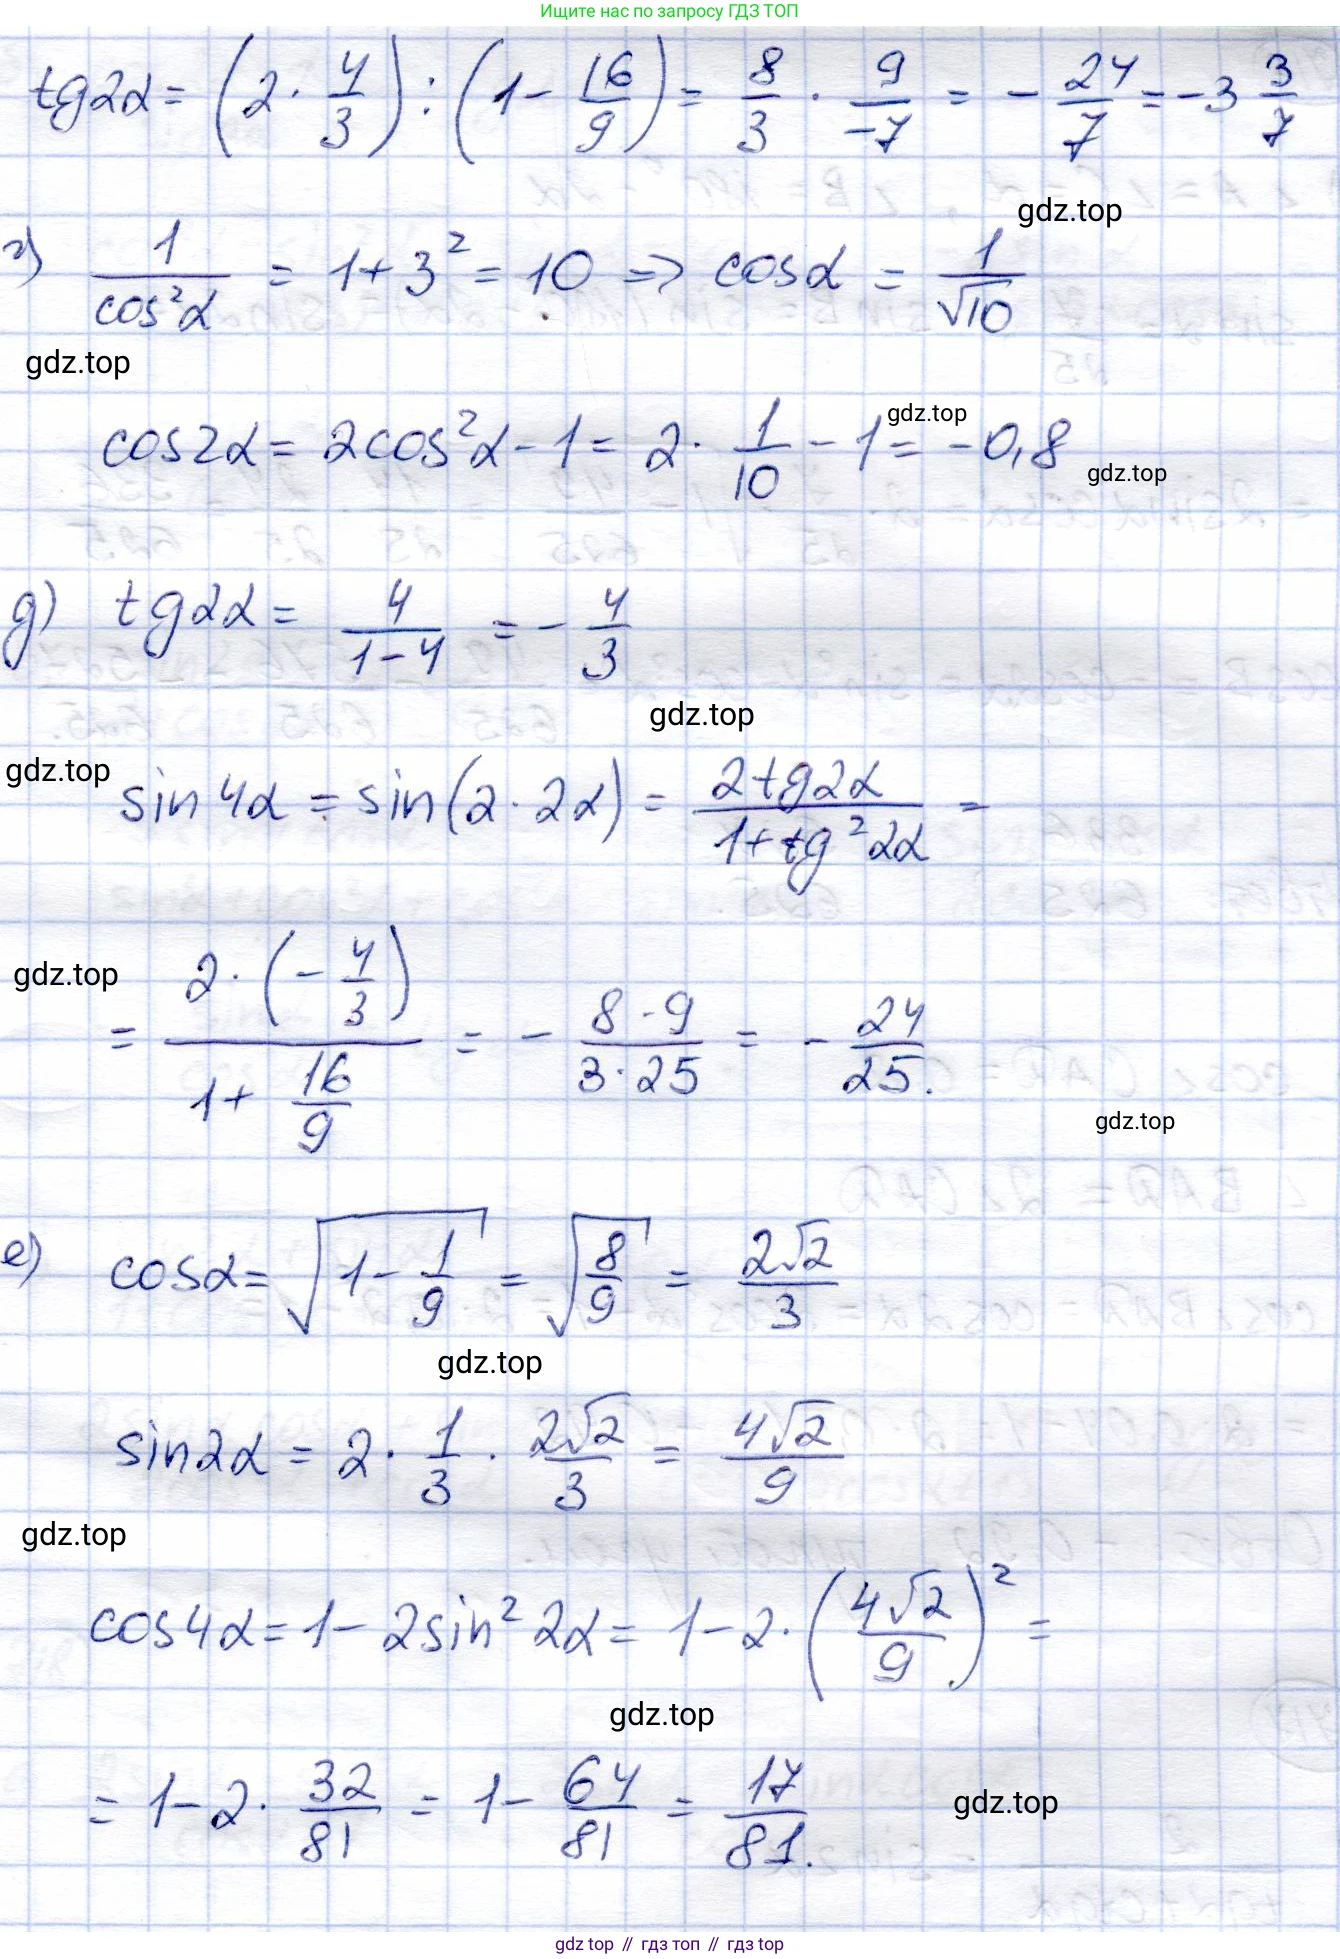 Ищите нас по запросу ГДЗ ТОП
tg2α = (2 · 4/3) : (1 - 16/9) = 8/3 · 9/-7 = - 24/7 = -3 3/7
gdz.top
г) 1/cos²α = 1 + 3² = 10 => cosα = 1/√10
gdz.top
gdz.top
cos2α = 2cos²α - 1 = 2 · 1/10 - 1 = -0,8
gdz.top
g) tg2α = 4/1-4 = - 4/3
gdz.top
gdz.top
sin4α = sin(2 · 2α) = 2tg2α/1+tg²2α =
gdz.top
= 2 · (- 4/3)/1 + 16/9 = - 8 · 9/3 · 25 = - 24/25.
gdz.top
е) cosα = √(1 - 1/9) = √(8/9) = 2√2/3
gdz.top
sin2α = 2 · 1/3 · 2√2/3 = 4√2/9
gdz.top
cos4α = 1 - 2sin²2α = 1 - 2 · (4√2/9)² =
gdz.top
= 1 - 2 · 32/81 = 1 - 64/81 = 17/81.
gdz.top
gdz top // гдз топ // гдз top